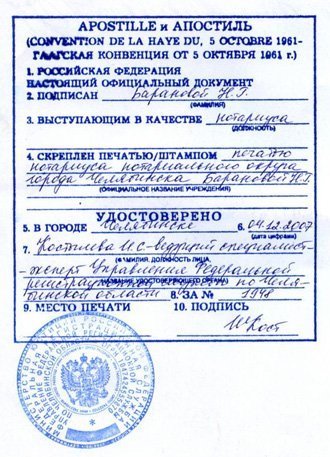 APOSTILLE и АПОСТИЛЬ
(CONVENTION DE LA HAYE DU, 5 OCTOBRE 1961-
ГААГСКАЯ КОНВЕНЦИЯ ОТ 5 ОКТЯБРЯ 1961 г.)
1. РОССИЙСКАЯ ФЕДЕРАЦИЯ
НАСТОЯЩИЙ ОФИЦИАЛЬНЫЙ ДОКУМЕНТ
2. ПОДПИСАН Барановой Н.Г.
(ФАМИЛИЯ)
3. ВЫСТУПАЮЩИМ В КАЧЕСТВЕ нотариуса
(ДОЛЖНОСТЬ)
4. СКРЕПЛЕН ПЕЧАТЬЮ/ШТАМПОМ печатью
нотариуса нотариального округа
города Челябинска Барановой Н.Г.
(ОФИЦИАЛЬНОЕ НАЗВАНИЕ УЧРЕЖДЕНИЯ)
УДОСТОВЕРЕНО
5. В ГОРОДЕ Челябинске 6. 04.12.2007
(дата цифрами)
7. Костылева И.С-ведущий специалист-
(ФАМИЛИЯ, ДОЛЖНОСТЬ ЛИЦА,
эксперт Управления Федеральной
НАЗВАНИЕ УДОСТОВЕРЯЮЩЕГО ОРГАНА)
регистрационной службы по Челя-
бинской области 8. ЗА № 1948
9. МЕСТО ПЕЧАТИ 10. ПОДПИСЬ